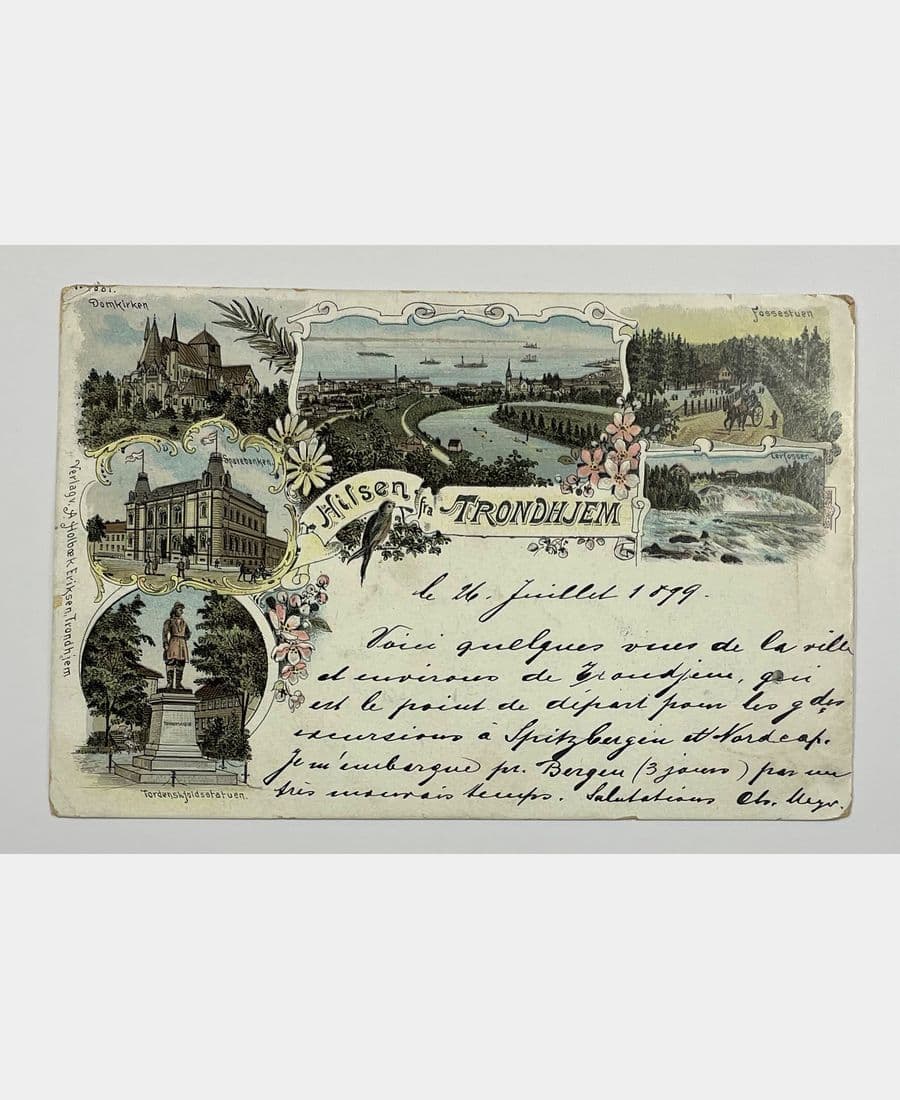 Domkirken
Fossestuen
Sparebanken
Lerfossen
Hilsen fra TRONDHJEM
Verlag v. A. Holbæk Eriksen, Trondhjem
Tordenskjoldsstatuen.
le 26. Juillet 1899.
Voici quelques vues de la ville
et environs de Trondjem, qui
est le point de départ pour les gdes
excursions à Spitzbergen et Nordcap.
Je m'embarque pr. Bergen (3 jours) par un
très mauvais temps. Salutations Ch.